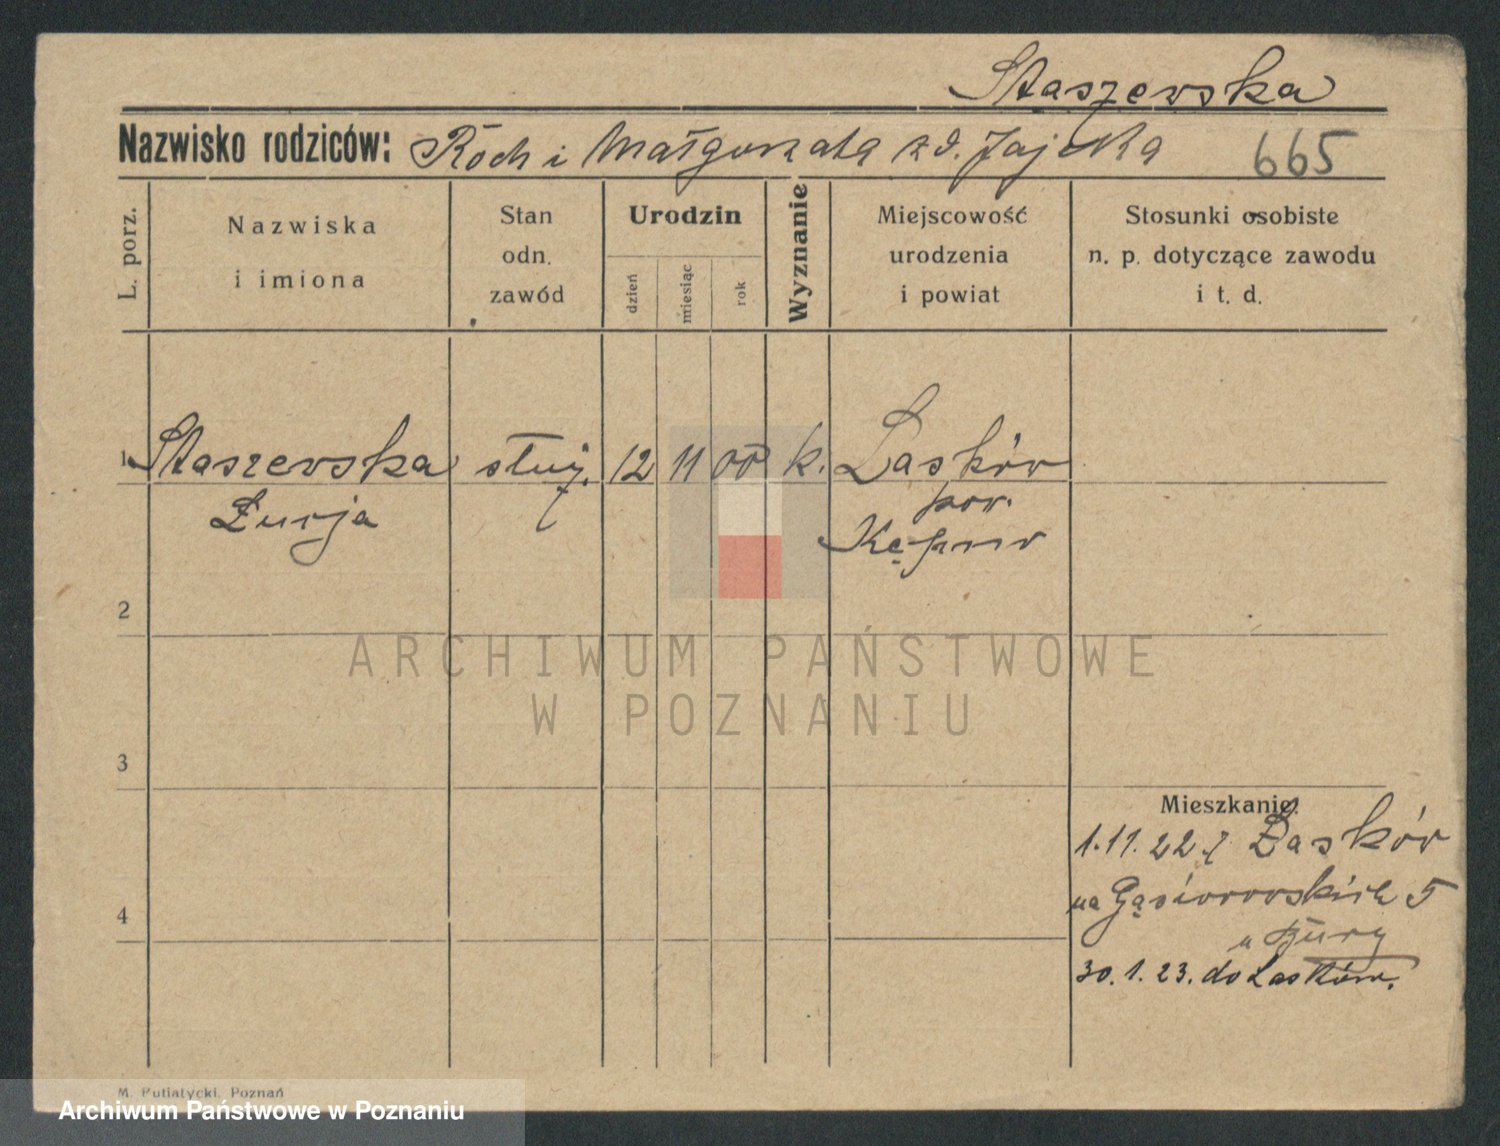 Staszewska
Nazwisko rodziców: Roch i Małgorzata zd. Jajeska 665
L. porz.
Nazwiska
i imiona
Stan
odn.
zawód
Urodzin
dzień
miesiąc
rok
Wyznanie
Miejscowość
urodzenia
i powiat
Stosunki osobiste
n. p. dotyczące zawodu
i t. d.
1 Staszewska służ. 12 11 00 k. Lasków
Łucja pow.
Kępno
2
3
4
Mieszkanie:
1.11.22 z Lasków
na Gąsiorowskich 5
u
30.1.23. do Lasków.
M. Putiatycki, Poznań
ARCHIWUM PAŃSTWOWE
W POZNANIU
Archiwum Państwowe w Poznaniu